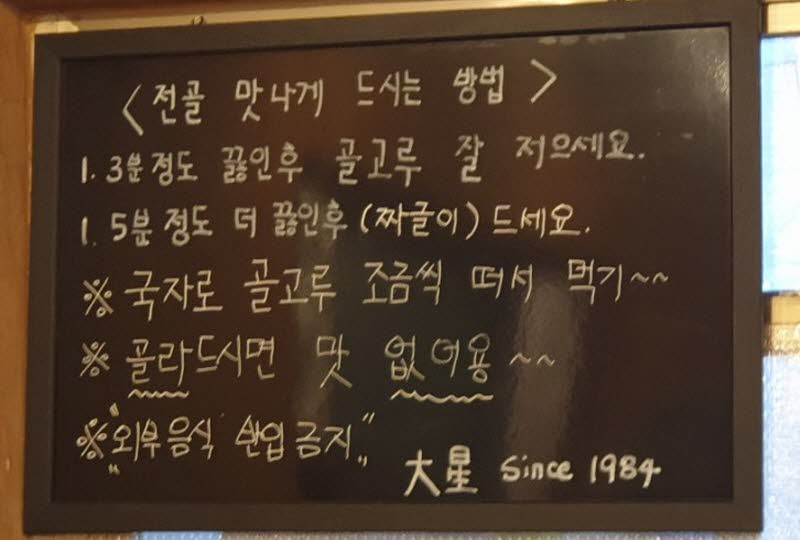 <전골 맛나게 드시는 방법>
1. 3분정도 끓인후 골고루 잘 저으세요.
1. 5분정도 더 끓인후 (짜글이) 드세요.
※ 국자로 골고루 조금씩 떠서 먹기~~
※ 골라드시면 맛 없어용~~
※ "외부음식 반입금지"
大星 Since 1984